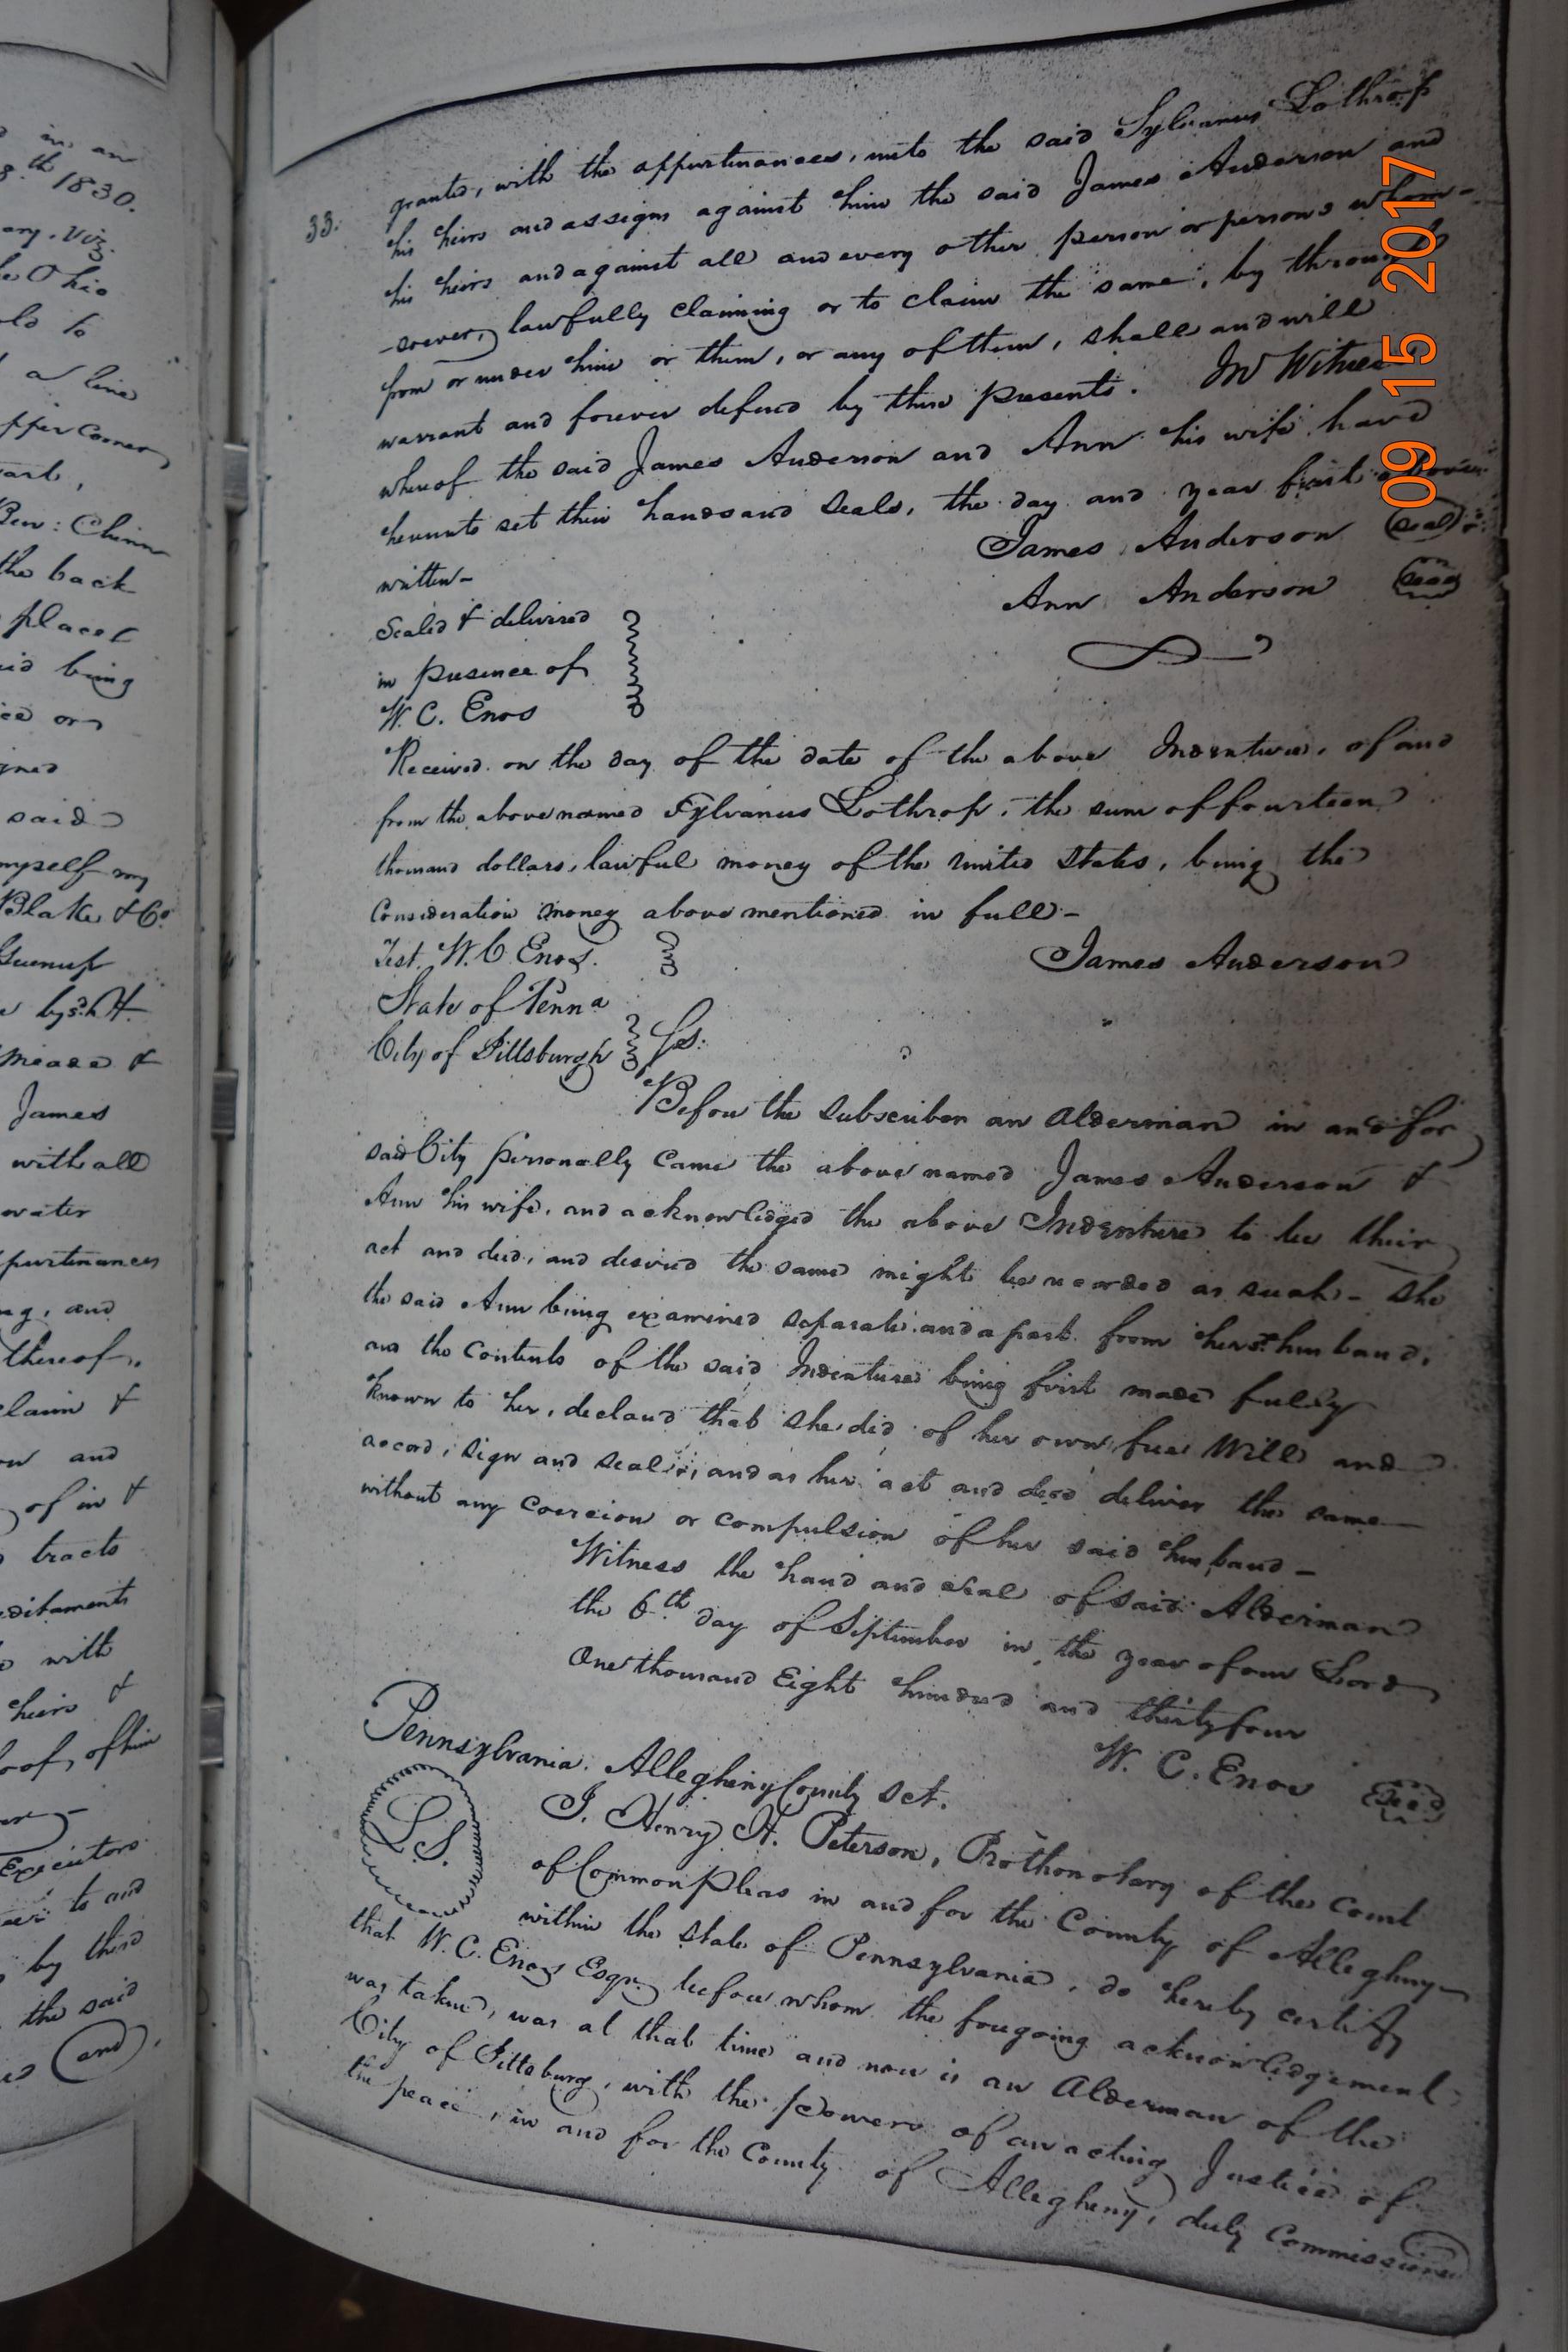 in an
8th 1830.
any. Viz.
the Ohio
old to
a line
upper corner
part,
Ben: Chinn
the back
placed
said being
ined
said
myself my
Blake & Co.
Greenup
James
with all
water
appurtenances
and
thereof,
claim &
and
of in &
tracts
with
heirs &
of him
Executors
to and
by these
the said
(and)
33.
granted, with the appurtenances, unto the said Sylvanus Lothrop
his heirs and assigns against him the said James Anderson and
his heirs and against all and every other person or persons whom-
-soever, lawfully claiming or to claim the same, by through
from or under him or them, or any of them, shall and will
warrant and forever defend by these presents. In Witness
whereof the said James Anderson and Ann his wife have
hereunto set their hands and seals, the day and year first above
written-
James Anderson (seal)
Ann Anderson (seal)
Sealed & delivered
in presence of
W. C. Enos
Received on the day of the date of the above Indenture, of and
from the above named Sylvanus Lothrop, the sum of fourteen
thousand dollars, lawful money of the united States, being the
Consideration money above mentioned in full-
Test. W. C. Enos.
James Anderson
State of Penna
City of Pittsburgh ss:
Before the subscriber an Alderman in and for
said City personally came the above named James Anderson &
Ann his wife, and acknowledged the above Indenture to be their
act and deed, and desired the same might be recorded as such- She
the said Ann being examined separate and apart from her sd. husband,
and the contents of the said Indenture being first made fully
known to her, declared that she did of her own free Will and
accord, sign and seal, and as her act and deed deliver the same
without any coercion or compulsion of her said husband-
Witness the hand and seal of said Alderman
the 6th day of September in the year of our Lord
One thousand Eight hundred and thirty four
W. C. Enos (Seal)
Pennsylvania. Allegheny County Sct.
L.S.
I. Henry H. Peterson, Prothonotary of the Court
of Common Pleas in and for the County of Allegheny
within the state of Pennsylvania, do hereby certify
that W. C. Enos Esqr. before whom the foregoing acknowledgement
was taken, was at that time and now is an Alderman of the
City of Pittsburg, with the powers of an acting Justice of
the peace, in and for the County of Allegheny, duly Commissioned
09 15 2017